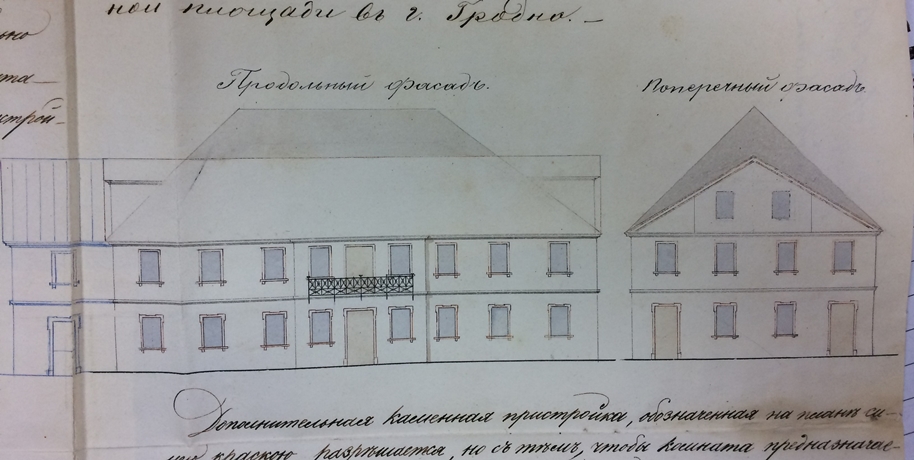 ной площади въ г. Гродно. —
ьно
та—
строй-
Продольный фасадъ.
Поперечный фасадъ
Дополнительная каменная пристройка, обозначенная на планѣ си-
нею краскою разрѣшается, но съ тѣмъ, чтобы комната предназначае-